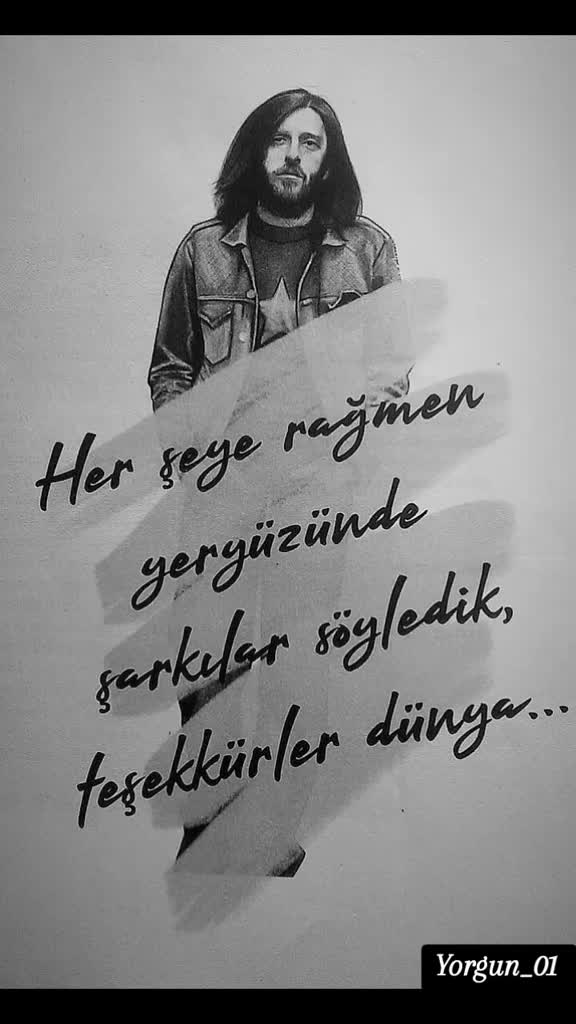 Her şeye rağmen
yeryüzünde
şarkılar söyledik,
teşekkürler dünya...
Yorgun_01